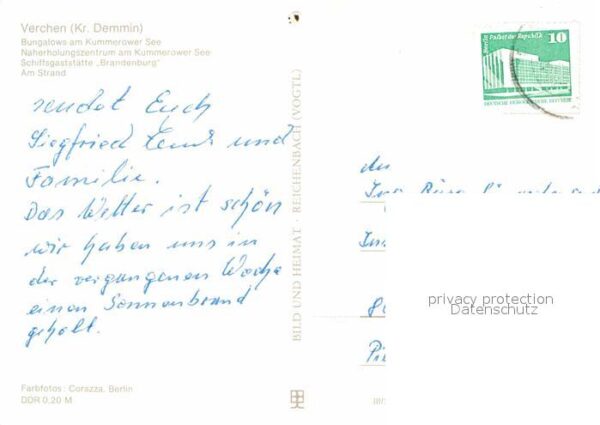 Verchen (Kr. Demmin)
Bungalows am Kummerower See
Naherholungszentrum am Kummerower See
Schiffsgaststätte „Brandenburg"
Am Strand
sendet Euch
Siegfried und
Familie.
Das Wetter ist schön
wir haben uns in
der vergangenen Woche
einen Sonnenbrand
geholt.
Farbfotos: Corazza, Berlin
DDR 0,20 M
BILD UND HEIMAT · REICHENBACH (VOGTL)
Berlin Palast der Republik
10
DEUTSCHE DEMOKRATISCHE REPUBLIK
privacy protection
Datenschutz